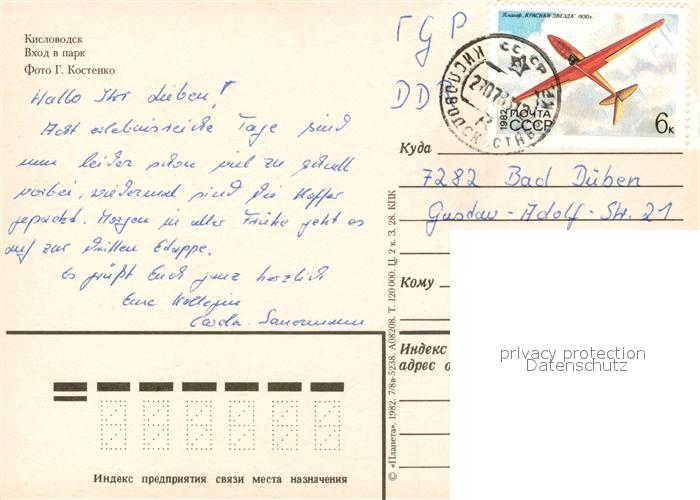 Кисловодск
Вход в парк
Фото Г. Костенко
Hallo Ihr Lieben!
Acht erlebnisreiche Tage sind
nun leider schon viel zu schnell
vorbei, wiedermal sind die Koffer
gepackt. Morgen in aller Frühe geht es
auf zur dritten Etappe.
Es grüßt Euch ganz herzlich
Eure Kollegin
ГДР
DDR
Планер „КРАСНАЯ ЗВЕЗДА". 1930г.
1982 ПОЧТА
СССР
6к
СССР
КИСЛОВОДСК
Куда
7282 Bad Düben
Gustav-Adolf-Str. 21
Кому
Индекс
адрес о
© «Планета». 1982. 7/8в-5238. А08208. Т. 120 000. Ц. 2 к. З. 28. КПК
Индекс предприятия связи места назначения
privacy protection
Datenschutz